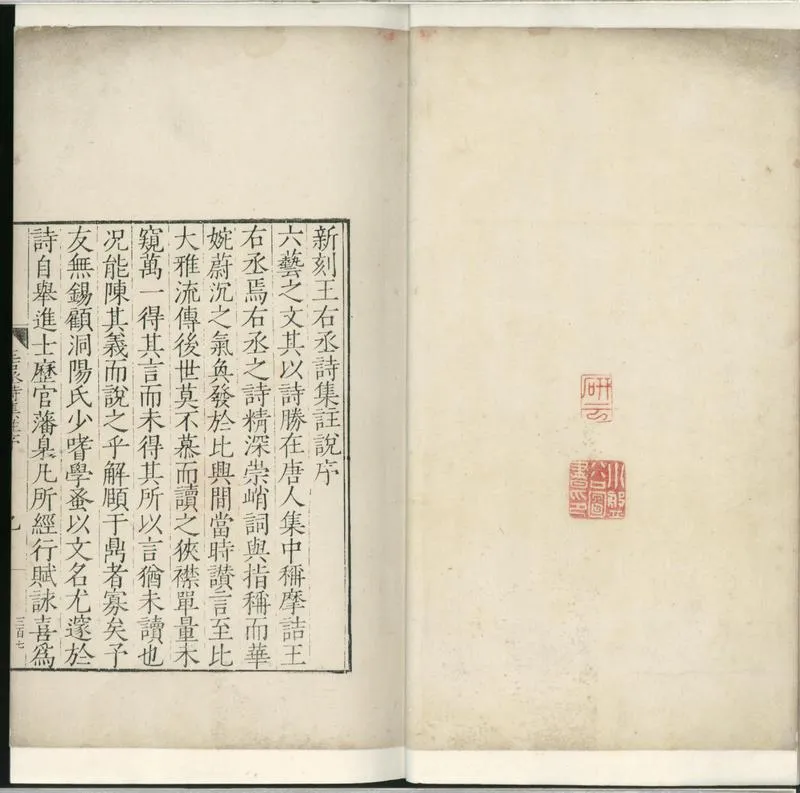 研云
小盤
谷圖
書印
新刻王右丞詩集註說序
六藝之文其以詩勝在唐人集中稱摩詰王
右丞焉右丞之詩精深崇峭詞與指稱而華
婉蔚沉之氣奐發於比興間當時讃言至比
大雅流傳後世莫不慕而讀之狹襟單量未
窺萬一得其言而未得其所以言猶未讀也
况能陳其義而說之乎解頤于鼎者寡矣予
友無錫顧洞陽氏少嗜學蚤以文名尤邃於
詩自舉進士歷官藩臬凡所經行賦詠喜爲
三百七